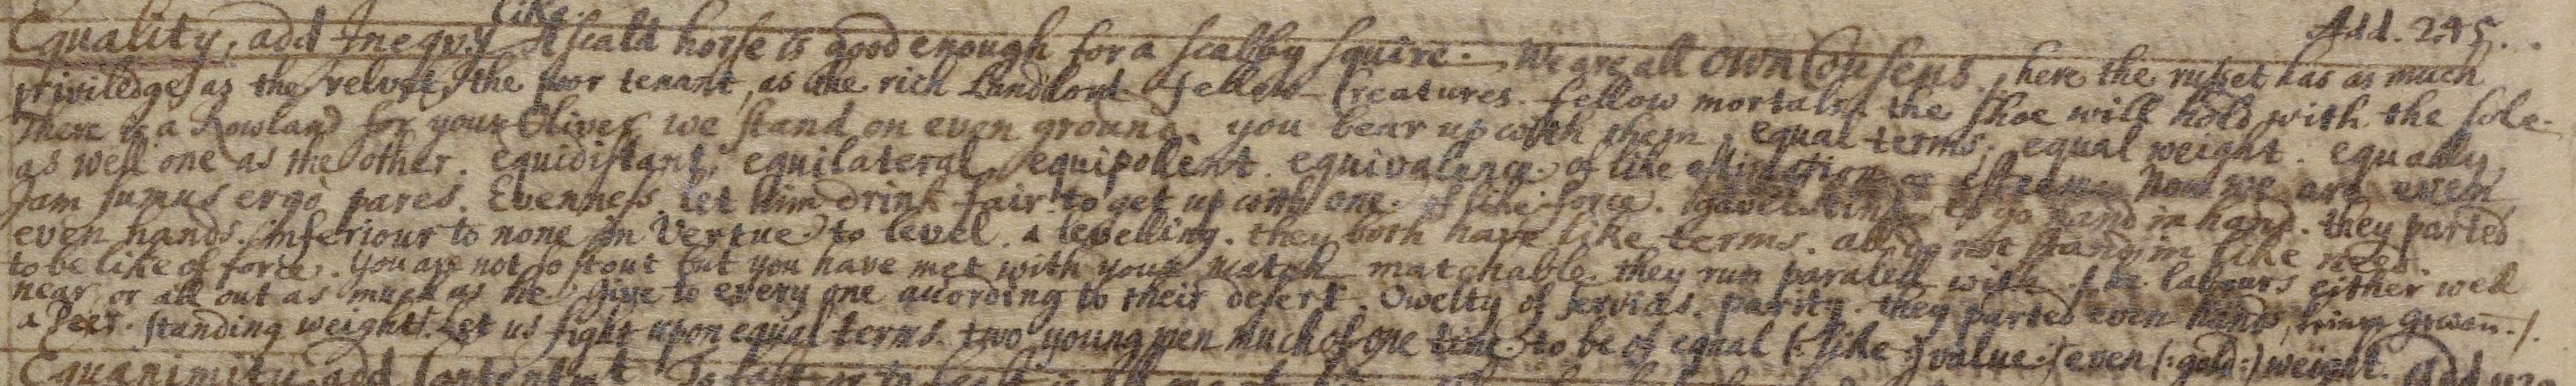 like.
Equality, add Ineqv.y A scald horse is good enough for a scabby squire. We are all own Cousens. here the russet has as much Add. 295.
priviledge as the velvet, the poor tenant, as the rich Landlord. fellow Creatures. fellow mortals. the shoe will hold with the sole.
There is a Rowland for your Oliver. we stand on even ground. you bear up with them. equal terms; equal weight. equally
as well one as the other. equidistant; equilateral, equipolent. equivalence of like estimation or esteem. Now we are even
Jam sumus ergò pares. Evenness. Let him drink fair. to get up with one. of like force. to go hand in hand. they parted
even hands. inferiour to none in Vertue. to level. a levelling. they both have like terms. all do not stand in like need
to be like of force. You are not so stout but you have met with your match. matchable. they run paralell with. he labours either well
near, or all out as much as he. give to every one according to their desert. Owelty of services. parity. they parted even hand,
a Peer. standing weight. Let us fight upon equal terms. two young men much of one time. to be of equal (:like:) value. even (:gold:) weight.
Equanimity, add Contentm.t